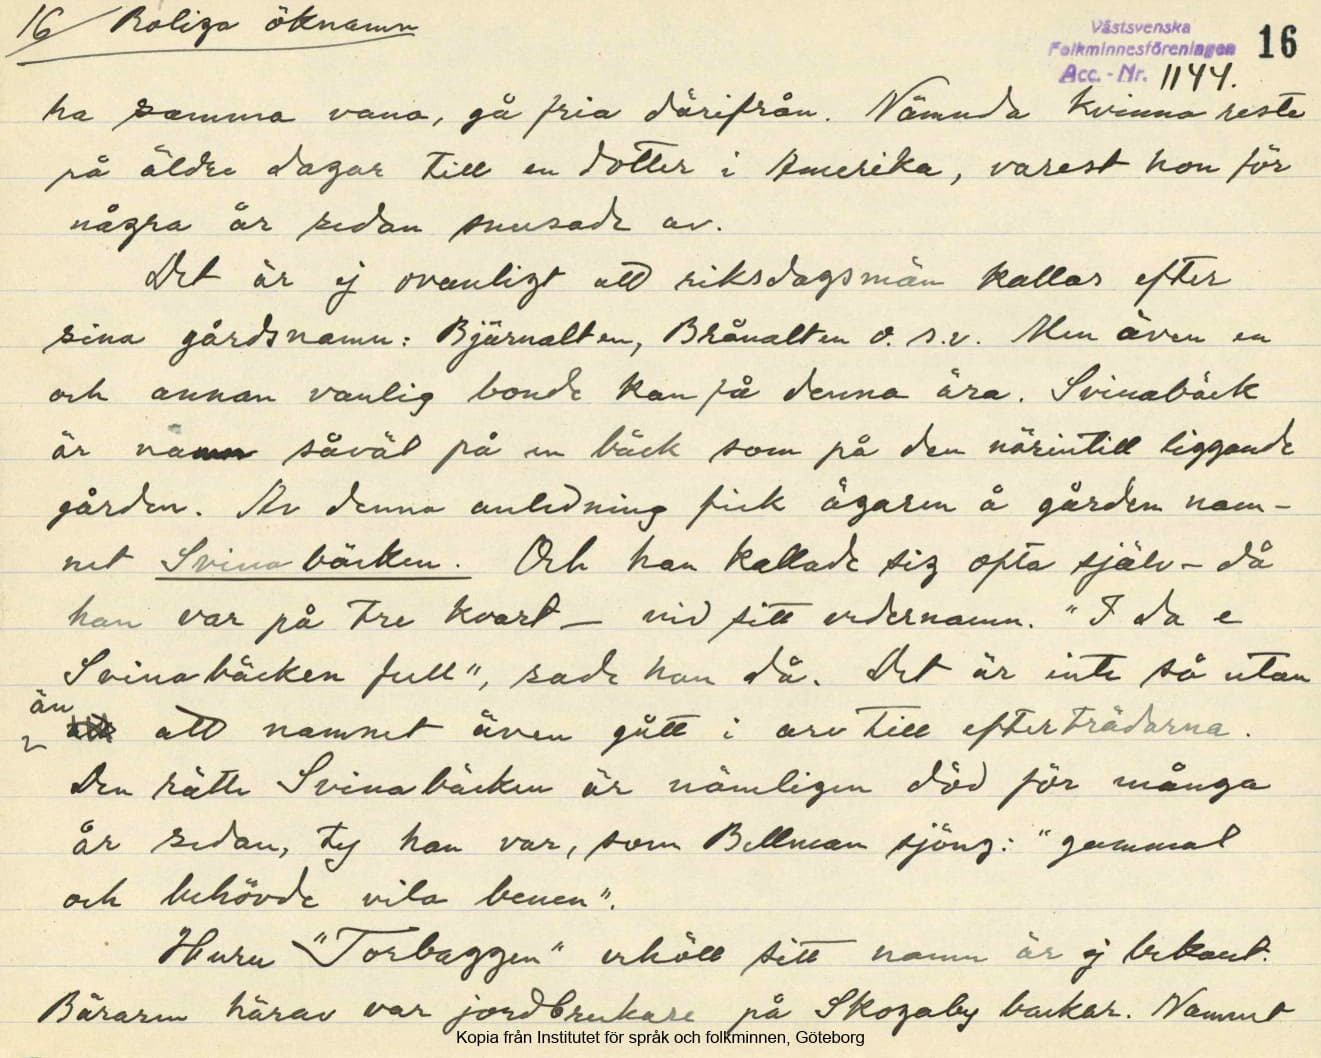 16/ Roliga öknamn
Västsvenska
Folkminnesföreningen
Acc.-Nr. 1144.
16
ha samma vana, gå fria därifrån. Nämnda kvinna reste
på äldre dagar till en dotter i Amerika, varest hon för
några år sedan snusade av.
Det är ej ovanligt att riksdagsmän kallas efter
sina gårdsnamn: Björnalten, Brånalten o.s.v. Men även en
och annan vanlig bonde kan få denna ära. Svinabäck
är namn såväl på en bäck som på den närintill liggande
gården. Av denna anledning fick ägaren å gården nam-
net Svinabäcken. Och han kallade sig ofta själv – då
han var på tre kvart – vid sitt vedernamn. "I da e
Svinabäcken full", sade han då. Det är inte så utan
än
att namnet även gått i arv till efterträdarna.
Den rätte Svinabäcken är nämligen död för många
år sedan, ty han var, som Bellman sjöng: "gammal
och behövde vila benen".
Huru "Torbaggen" erhöll sitt namn är ej bekant.
Bäraren härav var jordbrukare på Skogaby backar. Namnet
Kopia från Institutet för språk och folkminnen, Göteborg